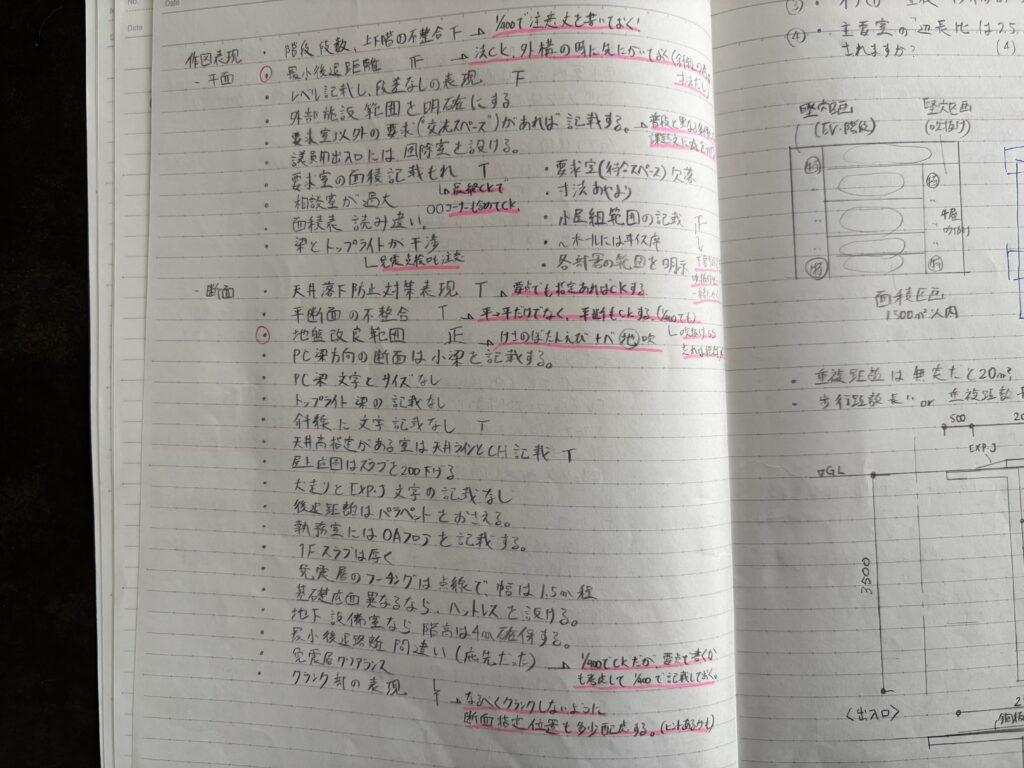 No.
Date
Date
作図表現
・階段段数、上下階の不整合 下 → 1/400で注意文を書いておく!
- 平面
・最小後退距離 正 → 法CK、外構の時に先にかいておく
寸法だし
・レベル記載し、段差なしの表現 下
・外部施設範囲を明確にする
・要求室以外の要求("交流スペース")があれば記載する。
・議員用出入口には風除室を設ける。
・要求室の面積記載もれ T
→最終CKで
○○コーナーも含めてCK
・相談室が過大
・面積表 読み違い。
・梁とトップライトが干渉
→免震点検口も注意
・要求室(待合スペース)欠落
・寸法あやまり
・小屋組範囲の記載 正
・〜ホールにはイス席
・各対策の範囲を明示
- 断面
・天井落下防止対策表現 T → 要点でも指定あればCKする
・平断面の不整合 T → 平⇔平だけでなく、平断もCKする(1/400でも)
・地盤改良範囲 正 → けさのぼたんえび+べ(地)吹
→吹抜け
・PC梁方向の断面は小梁を記載する。
・PC梁 文字とサイズなし
・トップライト梁の記載なし
・斜線に文字記載なし T
・天井高指定がある室は天井ラインとCH記載 T
・屋上庭園はスラブを200下げる
・犬走りとEXP.J 文字の記載なし
・後退距離はパラペットをおさえる。
・執務室にはOAフロアを記載する。
・1Fスラブは厚く
・免震層のフーチングは点線で、幅は1.5m程
・基礎底面異なるなら、ハットレスを設ける。
・地下設備室なら階高は4m確保する。
・最小後退距離 間違い(庇先だった) → 1/400でCKだが、要点で書くかも考慮して1/400で記載しておく。
・免震層クリアランス
・クランク部の表現 下 → なるべくクランクしないように
断面指定位置も多少配慮する。(ヒントあるかも)
③
④・主要室の辺長比は2.5
されますか? (4)
竪穴区画
(EV・階段)
竪穴区画
(吹抜け)
平屋
吹抜け
面積区画
1500m²以内
・重複距離は無窓だと20m²,
・歩行距離長い or 重複距離長
500
EXP.J
▽GL
3500
〈出入口〉